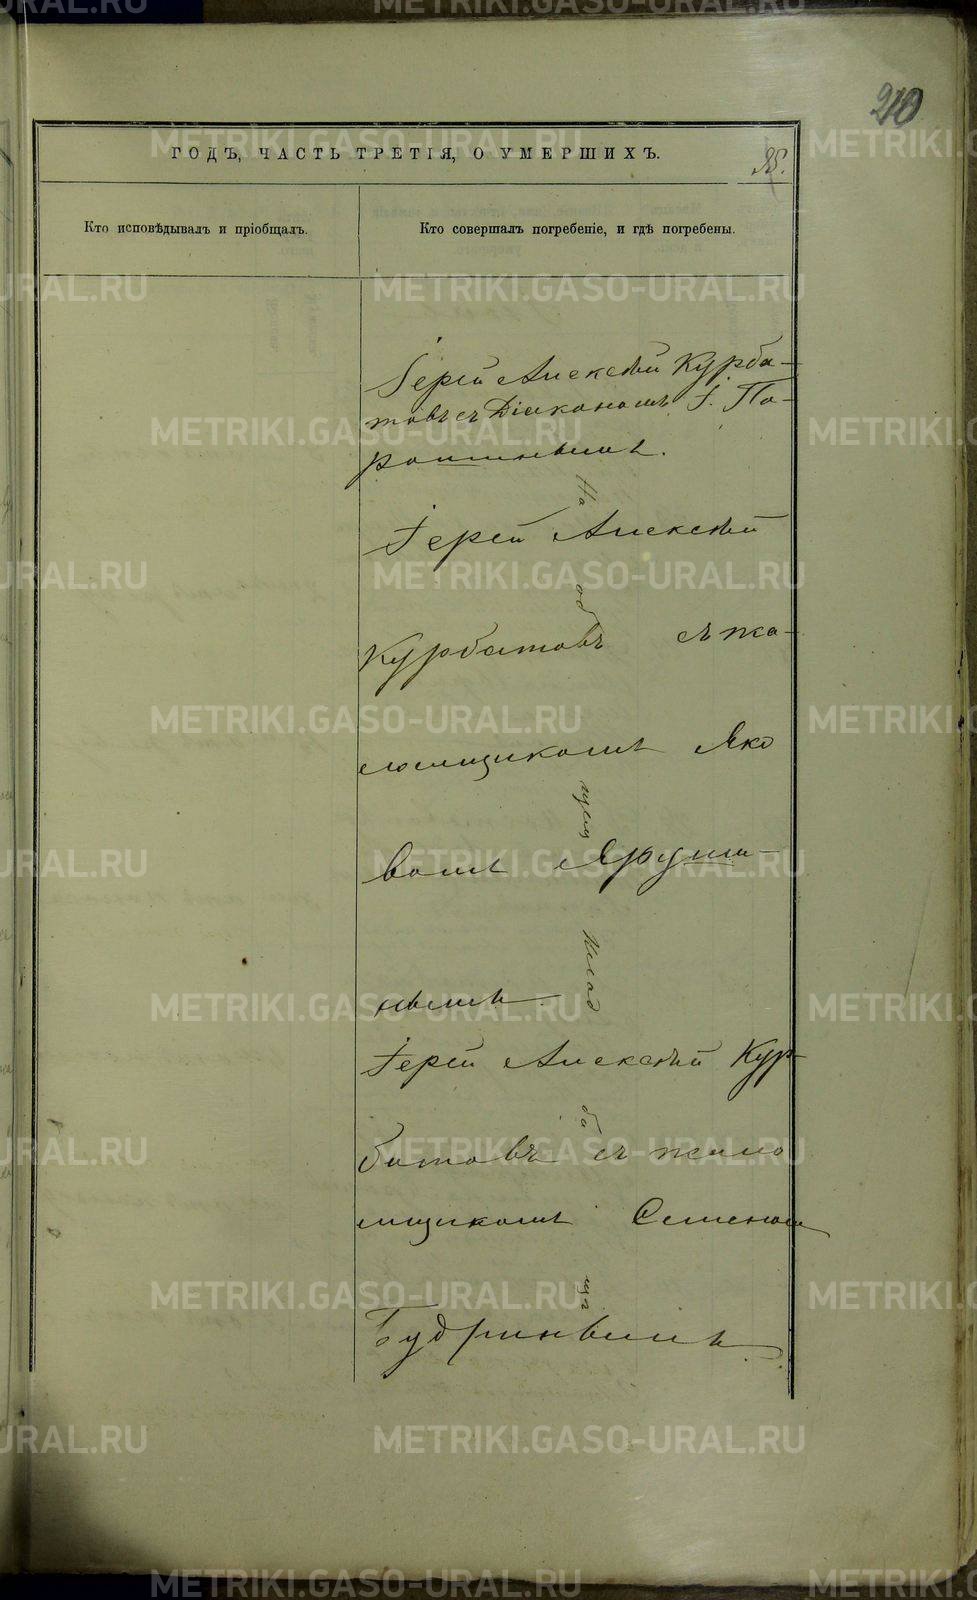 210
ГОДЪ, ЧАСТЬ ТРЕТІЯ, О УМЕРШИХЪ.
Кто исповѣдывалъ и пріобщалъ.
Кто совершалъ погребеніе, и гдѣ погребены.
Іерей Алексѣй Курба-
товъ съ Діакономъ І. По-
Іерей Алексѣй
Курбатовъ съ пса-
ломщикомъ Яко
вомъ Яруши-
нымъ.
Іерей Алексѣй Кур-
батовъ съ псало
мщикомъ Семеномъ
Будринымъ.
На
об
щем
клад
би
ща
METRIKI.GASO-URAL.RU